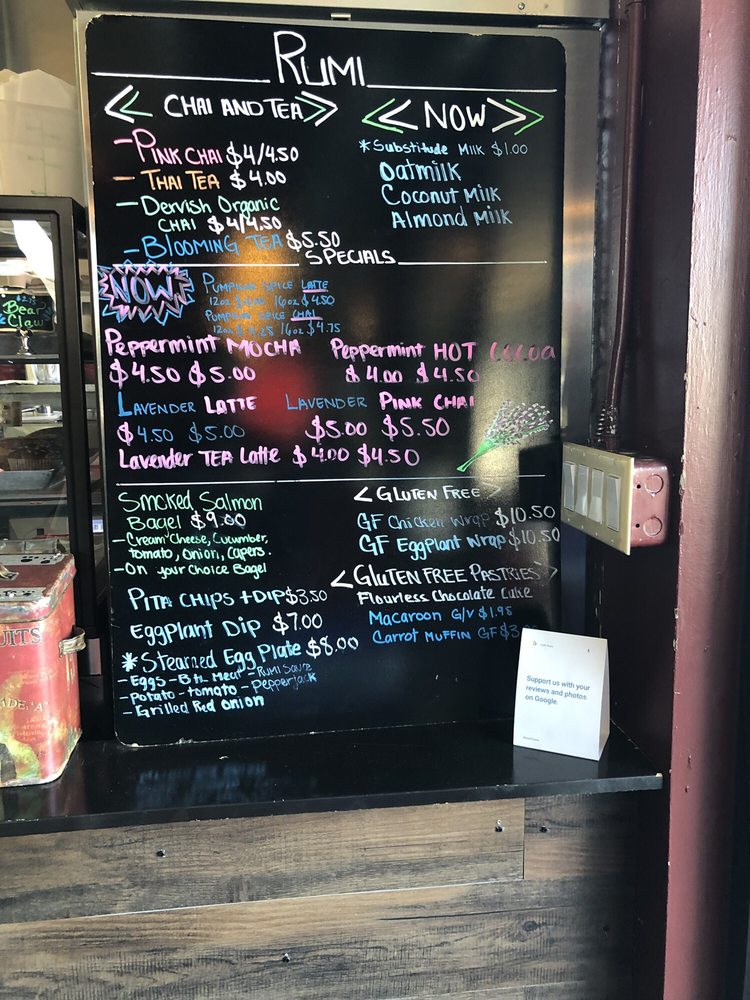 RUMI
CHAI AND TEA
- PINK CHAI $4/4.50
- THAI TEA $4.00
- Dervish Organic
CHAI $4/4.50
- BLOOMING TEA $5.50
NOW
*Substitude Milk $1.00
Oatmilk
Coconut Milk
Almond Milk
SPECIALS
NOW
PUMPKIN SPICE LATTE
12oz 16oz $4.50
PUMPKIN SPICE CHAI
12oz 16oz $4.75
Peppermint MOCHA
$4.50 $5.00
Peppermint HOT COCOA
$4.00 $4.50
LAVENDER LATTE
$4.50 $5.00
LAVENDER PINK CHAI
$5.00 $5.50
Lavender TEA Latte $4.00 $4.50
Smoked Salmon
Bagel $9.00
- Cream Cheese, Cucumber,
tomato, onion, capers.
- on your choice Bagel
PITA CHIPS + DIP $3.50
EggPlant Dip $7.00
*Steamed Egg Plate $8.00
- Eggs - Btl. Meat - Rumi Sauce
- Potato - tomato - Pepperjack
- Grilled Red Onion
<GLUTEN FREE>
GF Chicken Wrap $10.50
GF EggPlant Wrap $10.50
<GLUTEN FREE PASTRIES>
Flourless Chocolate Cake
Macaroon G/V $1.95
Carrot Muffin GF $3
$2.75
Bear
Claw
Support us with your
reviews and photos
on Google.